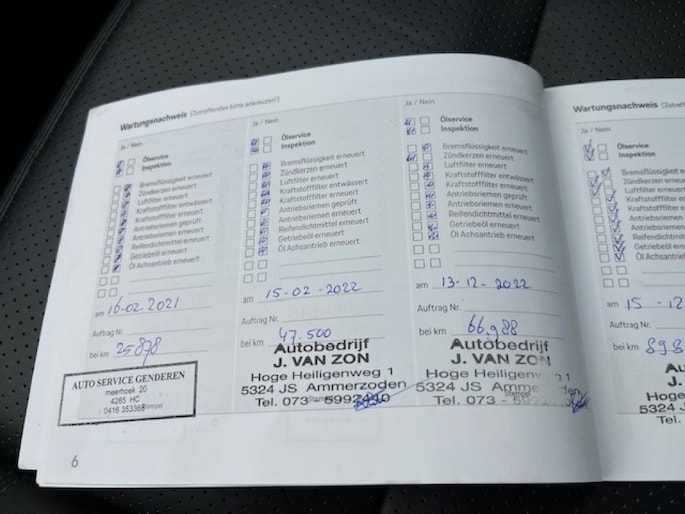 Wartungsnachweis (Zutreffendes bitte ankreuzen!)
Ja / Nein
Ölservice
Inspektion
Bremsflüssigkeit erneuert
Zündkerzen erneuert
Luftfilter erneuert
Kraftstofffilter entwässert
Kraftstofffilter erneuert
Antriebsriemen geprüft
Antriebsriemen erneuert
Reifendichtmittel erneuert
Getriebeöl erneuert
Öl Achsantrieb erneuert
am 16-02-2021
Auftrag Nr.
bei km 25878
AUTO SERVICE GENDEREN
meerhoek 20
4265 HC
Stempel
6
Ja / Nein
Ölservice
Inspektion
Bremsflüssigkeit erneuert
Zündkerzen erneuert
Luftfilter erneuert
Kraftstofffilter entwässert
Kraftstofffilter erneuert
Antriebsriemen geprüft
Antriebsriemen erneuert
Reifendichtmittel erneuert
Getriebeöl erneuert
Öl Achsantrieb erneuert
am 15-02-2022
Auftrag Nr.
bei km 47.500
Autobedrijf
J. VAN ZON
Hoge Heiligenweg 1
5324 JS Ammerzoden
Tel. 073 - 5992440
Ja / Nein
Ölservice
Inspektion
Bremsflüssigkeit erneuert
Zündkerzen erneuert
Luftfilter erneuert
Kraftstofffilter entwässert
Kraftstofffilter erneuert
Antriebsriemen geprüft
Antriebsriemen erneuert
Reifendichtmittel erneuert
Getriebeöl erneuert
Öl Achsantrieb erneuert
am 13-12-2022
Auftrag Nr.
bei km 66988
Autobedrijf
J. VAN ZON
Hoge Heiligenweg 1
5324 JS
Tel. 073 -
Stempel
Wartungsnachweis (Zutreffendes
Ja / Nein
Ölservice
Inspektion
Bremsflüssigkeit
Zündkerzen erneuert
Luftfilter erneuert
Kraftstofffilter
Kraftstofffilter
Antriebsriemen
Antriebsriemen
Reifendichtmittel
Getriebeöl erneuert
Öl Achsantrieb
am 15-12
Auftrag Nr.
bei km 898
J. VA
Hoge Hei
5324 JS
Tel. 07